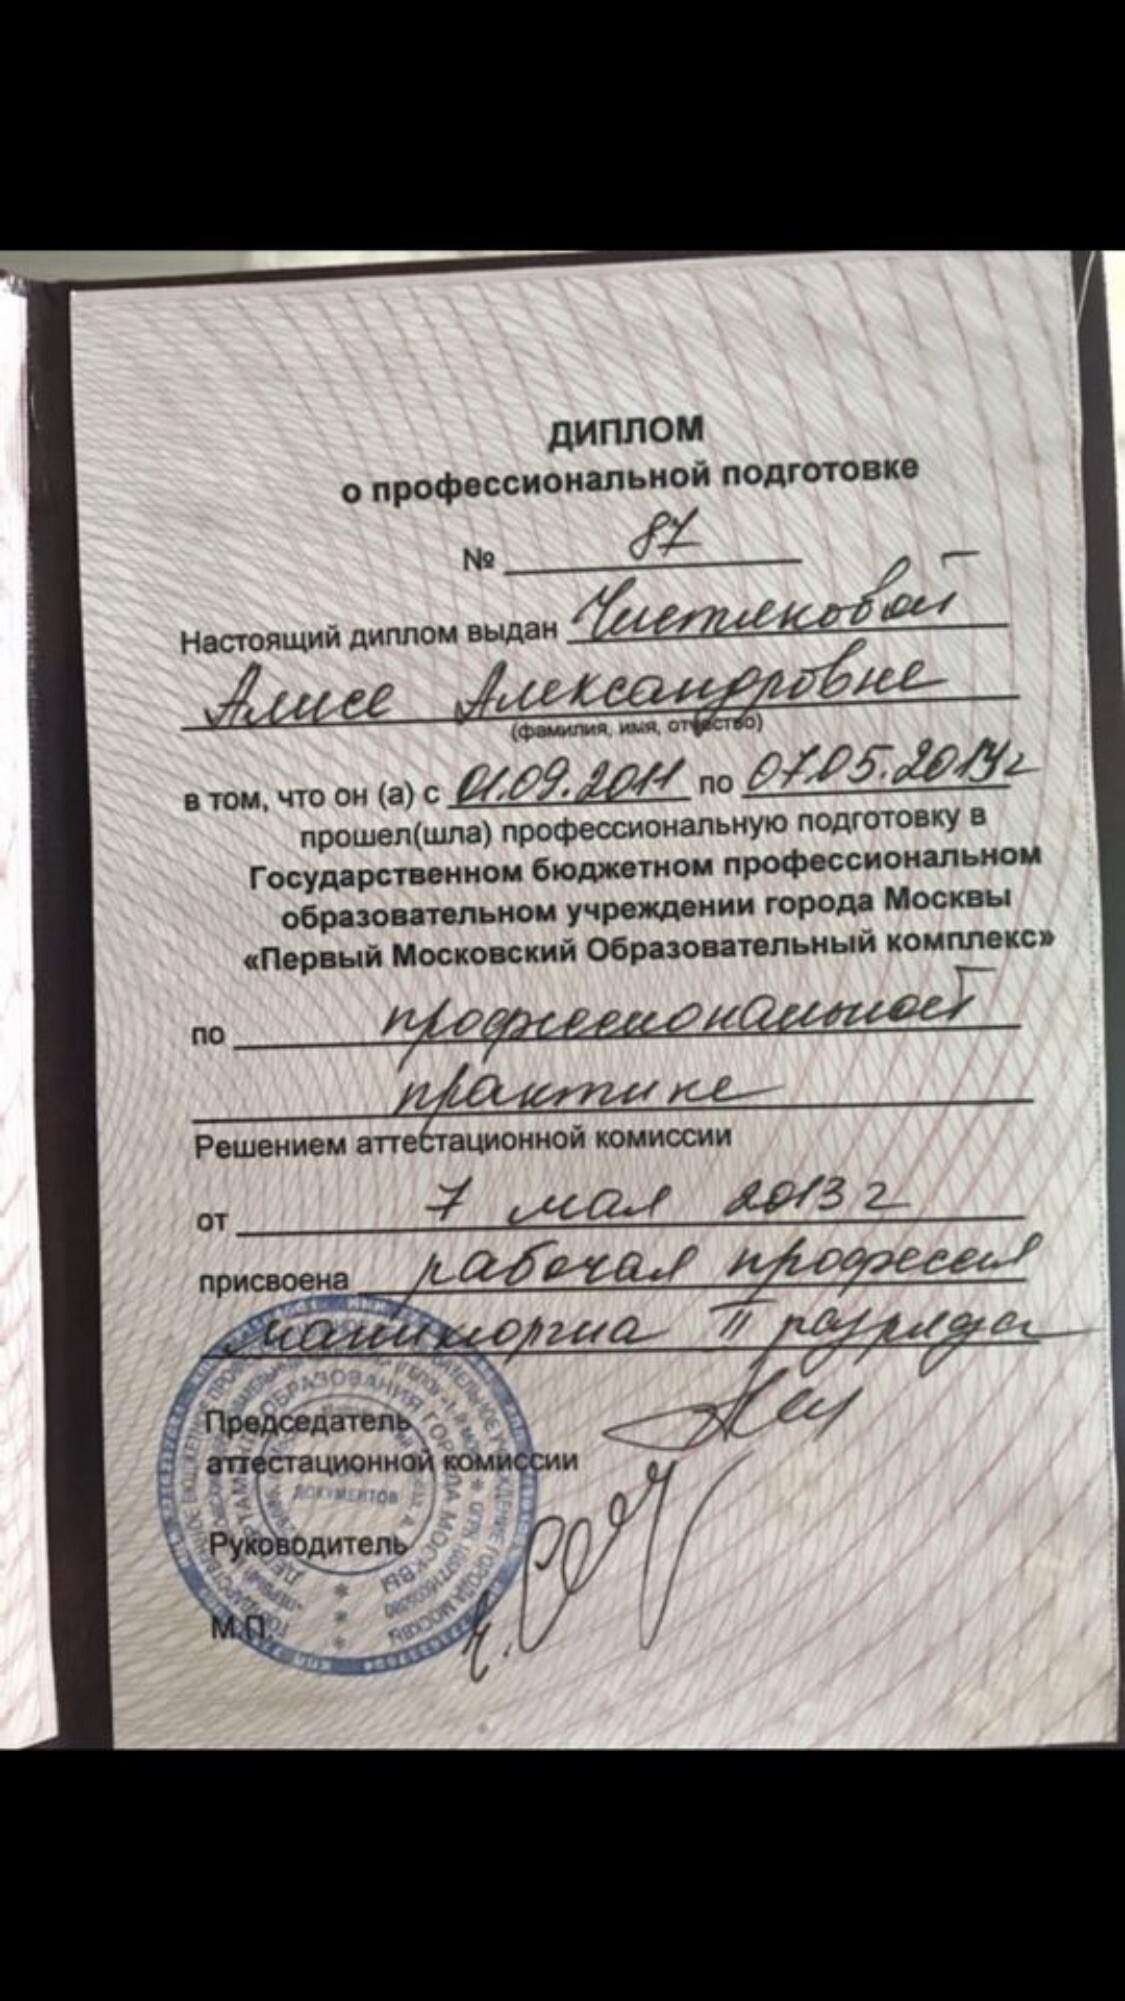 ДИПЛОМ
о профессиональной подготовке
№ 87
Настоящий диплом выдан Чистяковой
Алисе Александровне
(фамилия, имя, отчество)
в том, что он (а) с 01.09.2011 по 07.05.2013г
прошел(шла) профессиональную подготовку в
Государственном бюджетном профессиональном
образовательном учреждении города Москвы
«Первый Московский Образовательный комплекс»
по профессиональной
практике
Решением аттестационной комиссии
от 7 мая 2013 г
присвоена рабочая профессия
маникюрша II разряда
Председатель
аттестационной комиссии
Руководитель
М.П.
ОБРАЗОВАНИЯ ГОРОДА МОСКВЫ
ДОКУМЕНТОВ